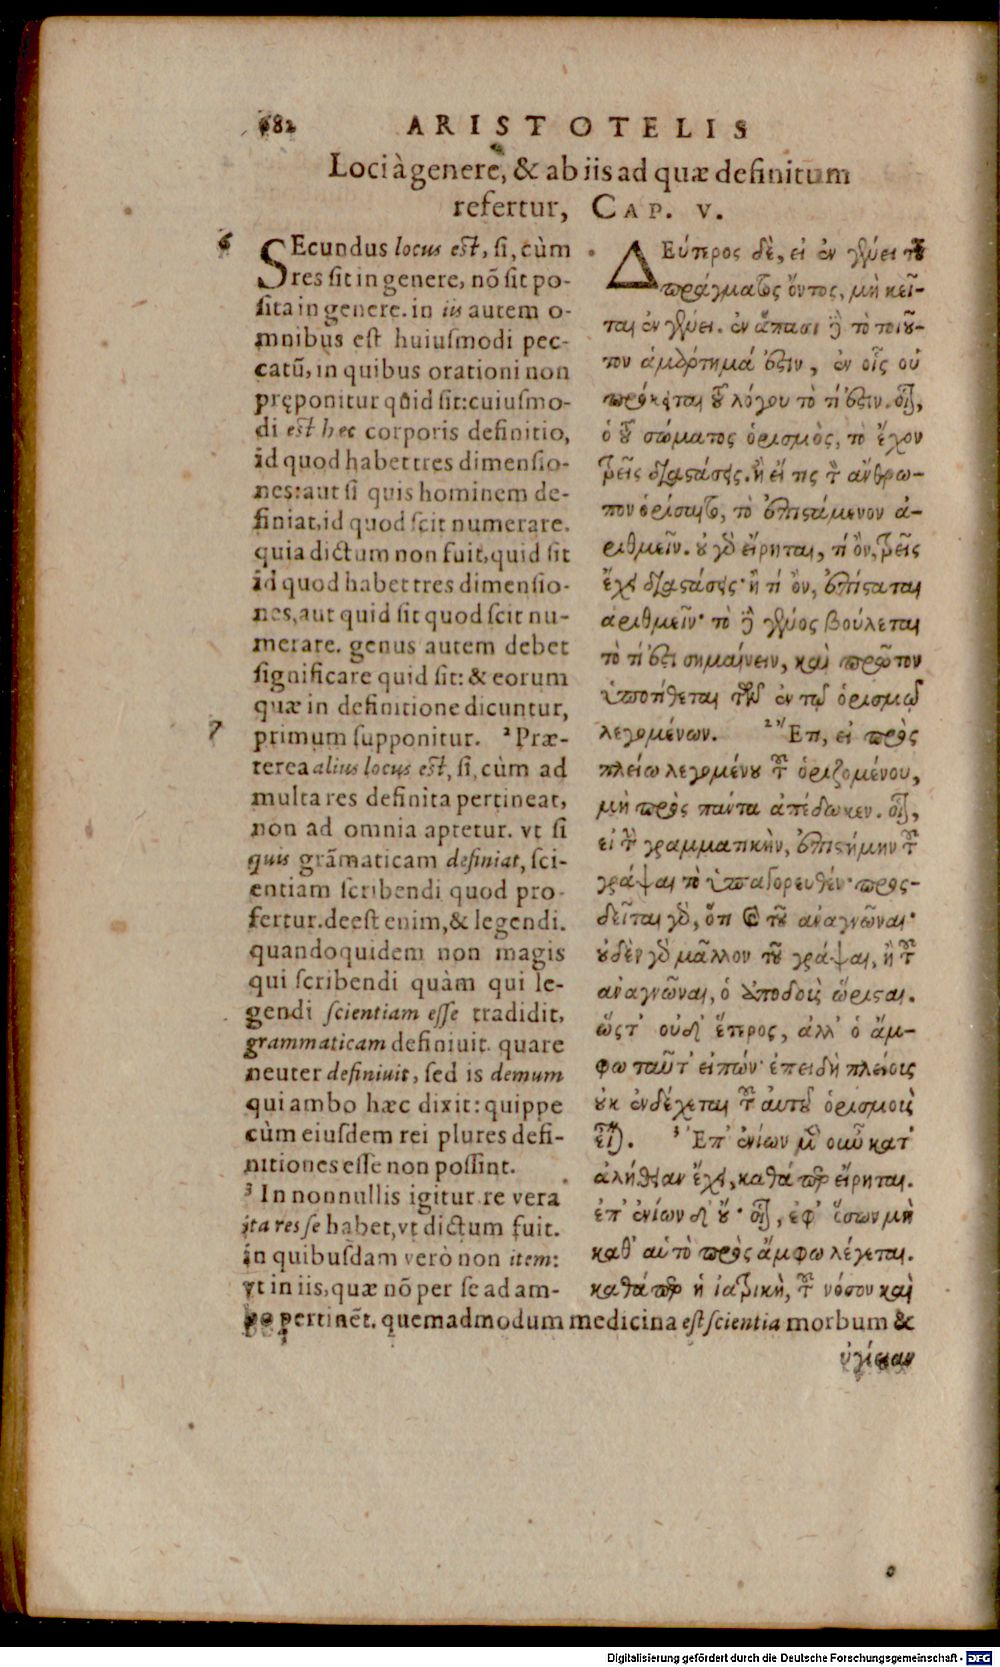 682 ARISTOTELIS
Loci à genere, & ab iis ad quæ definitum
refertur, CAP. V.
6
SEcundus locus est, si, cùm
res sit in genere, nõ sit po-
sita in genere. in iis autem o-
mnibus est huiusmodi pec-
catũ, in quibus orationi non
pręponitur quid sit: cuiusmo-
di est hęc corporis definitio,
id quod habet tres dimensio-
nes: aut si quis hominem de-
finiat, id quod scit numerare.
quia dictum non fuit, quid sit
id quod habet tres dimensio-
nes, aut quid sit quod scit nu-
merare. genus autem debet
significare quid sit: & eorum
quæ in definitione dicuntur,
7
primum supponitur. ² Præ-
terea alius locus est, si, cùm ad
multa res definita pertineat,
non ad omnia aptetur. vt si
quis grãmaticam definiat, sci-
entiam scribendi quod pro-
fertur. deest enim, & legendi.
quandoquidem non magis
qui scribendi quàm qui le-
gendi scientiam esse tradidit,
grammaticam definiuit. quare
neuter definiuit, sed is demum
qui ambo hæc dixit: quippe
cùm eiusdem rei plures defi-
nitiones esse non possint.
³ In nonnullis igitur re vera
ita res se habet, vt dictum fuit.
in quibusdam verò non item:
vt in iis, quæ nõ per se ad am-
bo pertinẽt. quemadmodum medicina est scientia morbum &
ΔΕύτερος δὲ, εἰ ἐν γένει τοῦ
πράγματος ὄντος, μὴ κεῖ-
ται ἐν γένει. ἐν ἅπασι δὲ τὸ τοιοῦ-
τον ἁμάρτημά ἐστιν, ἐν οἷς οὐ
πρόκειται τοῦ λόγου τὸ τί ἐστιν. οἷον,
ὁ τοῦ σώματος ὁρισμὸς, τὸ ἔχον
τρεῖς διαστάσεις. ἢ εἴ τις τὸν ἄνθρω-
πον ὁρίσαιτο, τὸ ἐπιστάμενον ἀ-
ριθμεῖν. οὐ γὰρ εἴρηται, τί ὂν, τρεῖς
ἔχει διαστάσεις· ἢ τί ὂν, ἐπίσταται
ἀριθμεῖν· τὸ δὲ γένος βούλεται
τὸ τί ἐστι σημαίνειν, καὶ πρῶτον
ὑποτίθεται τῶν ἐν τῷ ὁρισμῷ
λεγομένων. ² Ἔτι, εἰ πρὸς
πλείω λεγομένου τοῦ ὁριζομένου,
μὴ πρὸς πάντα ἀπέδωκεν. οἷον,
εἰ τὴν γραμματικὴν, ἐπιστήμην τοῦ
γράψαι τὸ ὑπαγορευθέν· προσ-
δεῖται γὰρ, ὅτι καὶ τοῦ ἀναγνῶναι·
οὐδὲν γὰρ μᾶλλον τοῦ γράψαι, ἢ τοῦ
ἀναγνῶναι, ὁ ἀποδοὺς ὥρισται.
ὥστ' οὐδ' ἕτερος, ἀλλ' ὁ ἄμ-
φω ταῦτ' εἰπών· ἐπειδὴ πλείους
οὐκ ἐνδέχεται τοῦ αὐτοῦ ὁρισμοὺς
εἶναι. ³ Ἐπ' ἐνίων μὲν οὖν κατ'
ἀλήθειαν ἔχει, καθάπερ εἴρηται.
ἐπ' ἐνίων δ' οὔ· οἷον, ἐφ' ὅσων μὴ
καθ' αὑτὸ πρὸς ἄμφω λέγεται.
καθάπερ ἡ ἰατρικὴ, τοῦ νόσον καὶ
ὑγίειαν
Digitalisierung gefördert durch die Deutsche Forschungsgemeinschaft - DFG